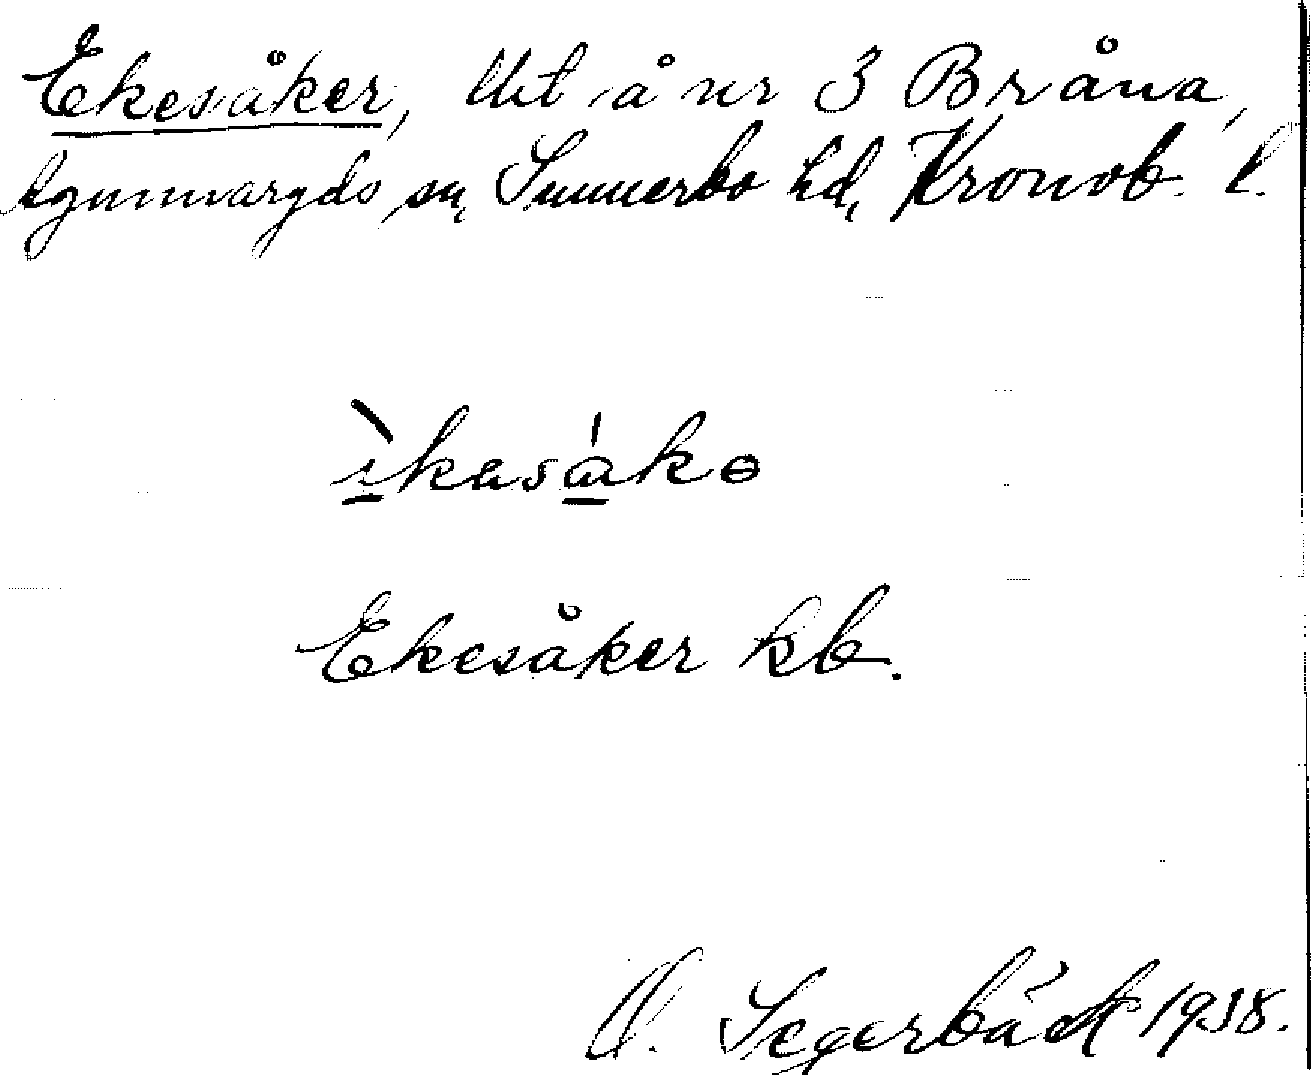 Ekesåker, Utt å nr 3 Bråna,
Agunnaryds sn, Sunnerbo hd, Kronob. l.
ìkasákə
Ekesåker kb.
O. Segerbäck 1938.